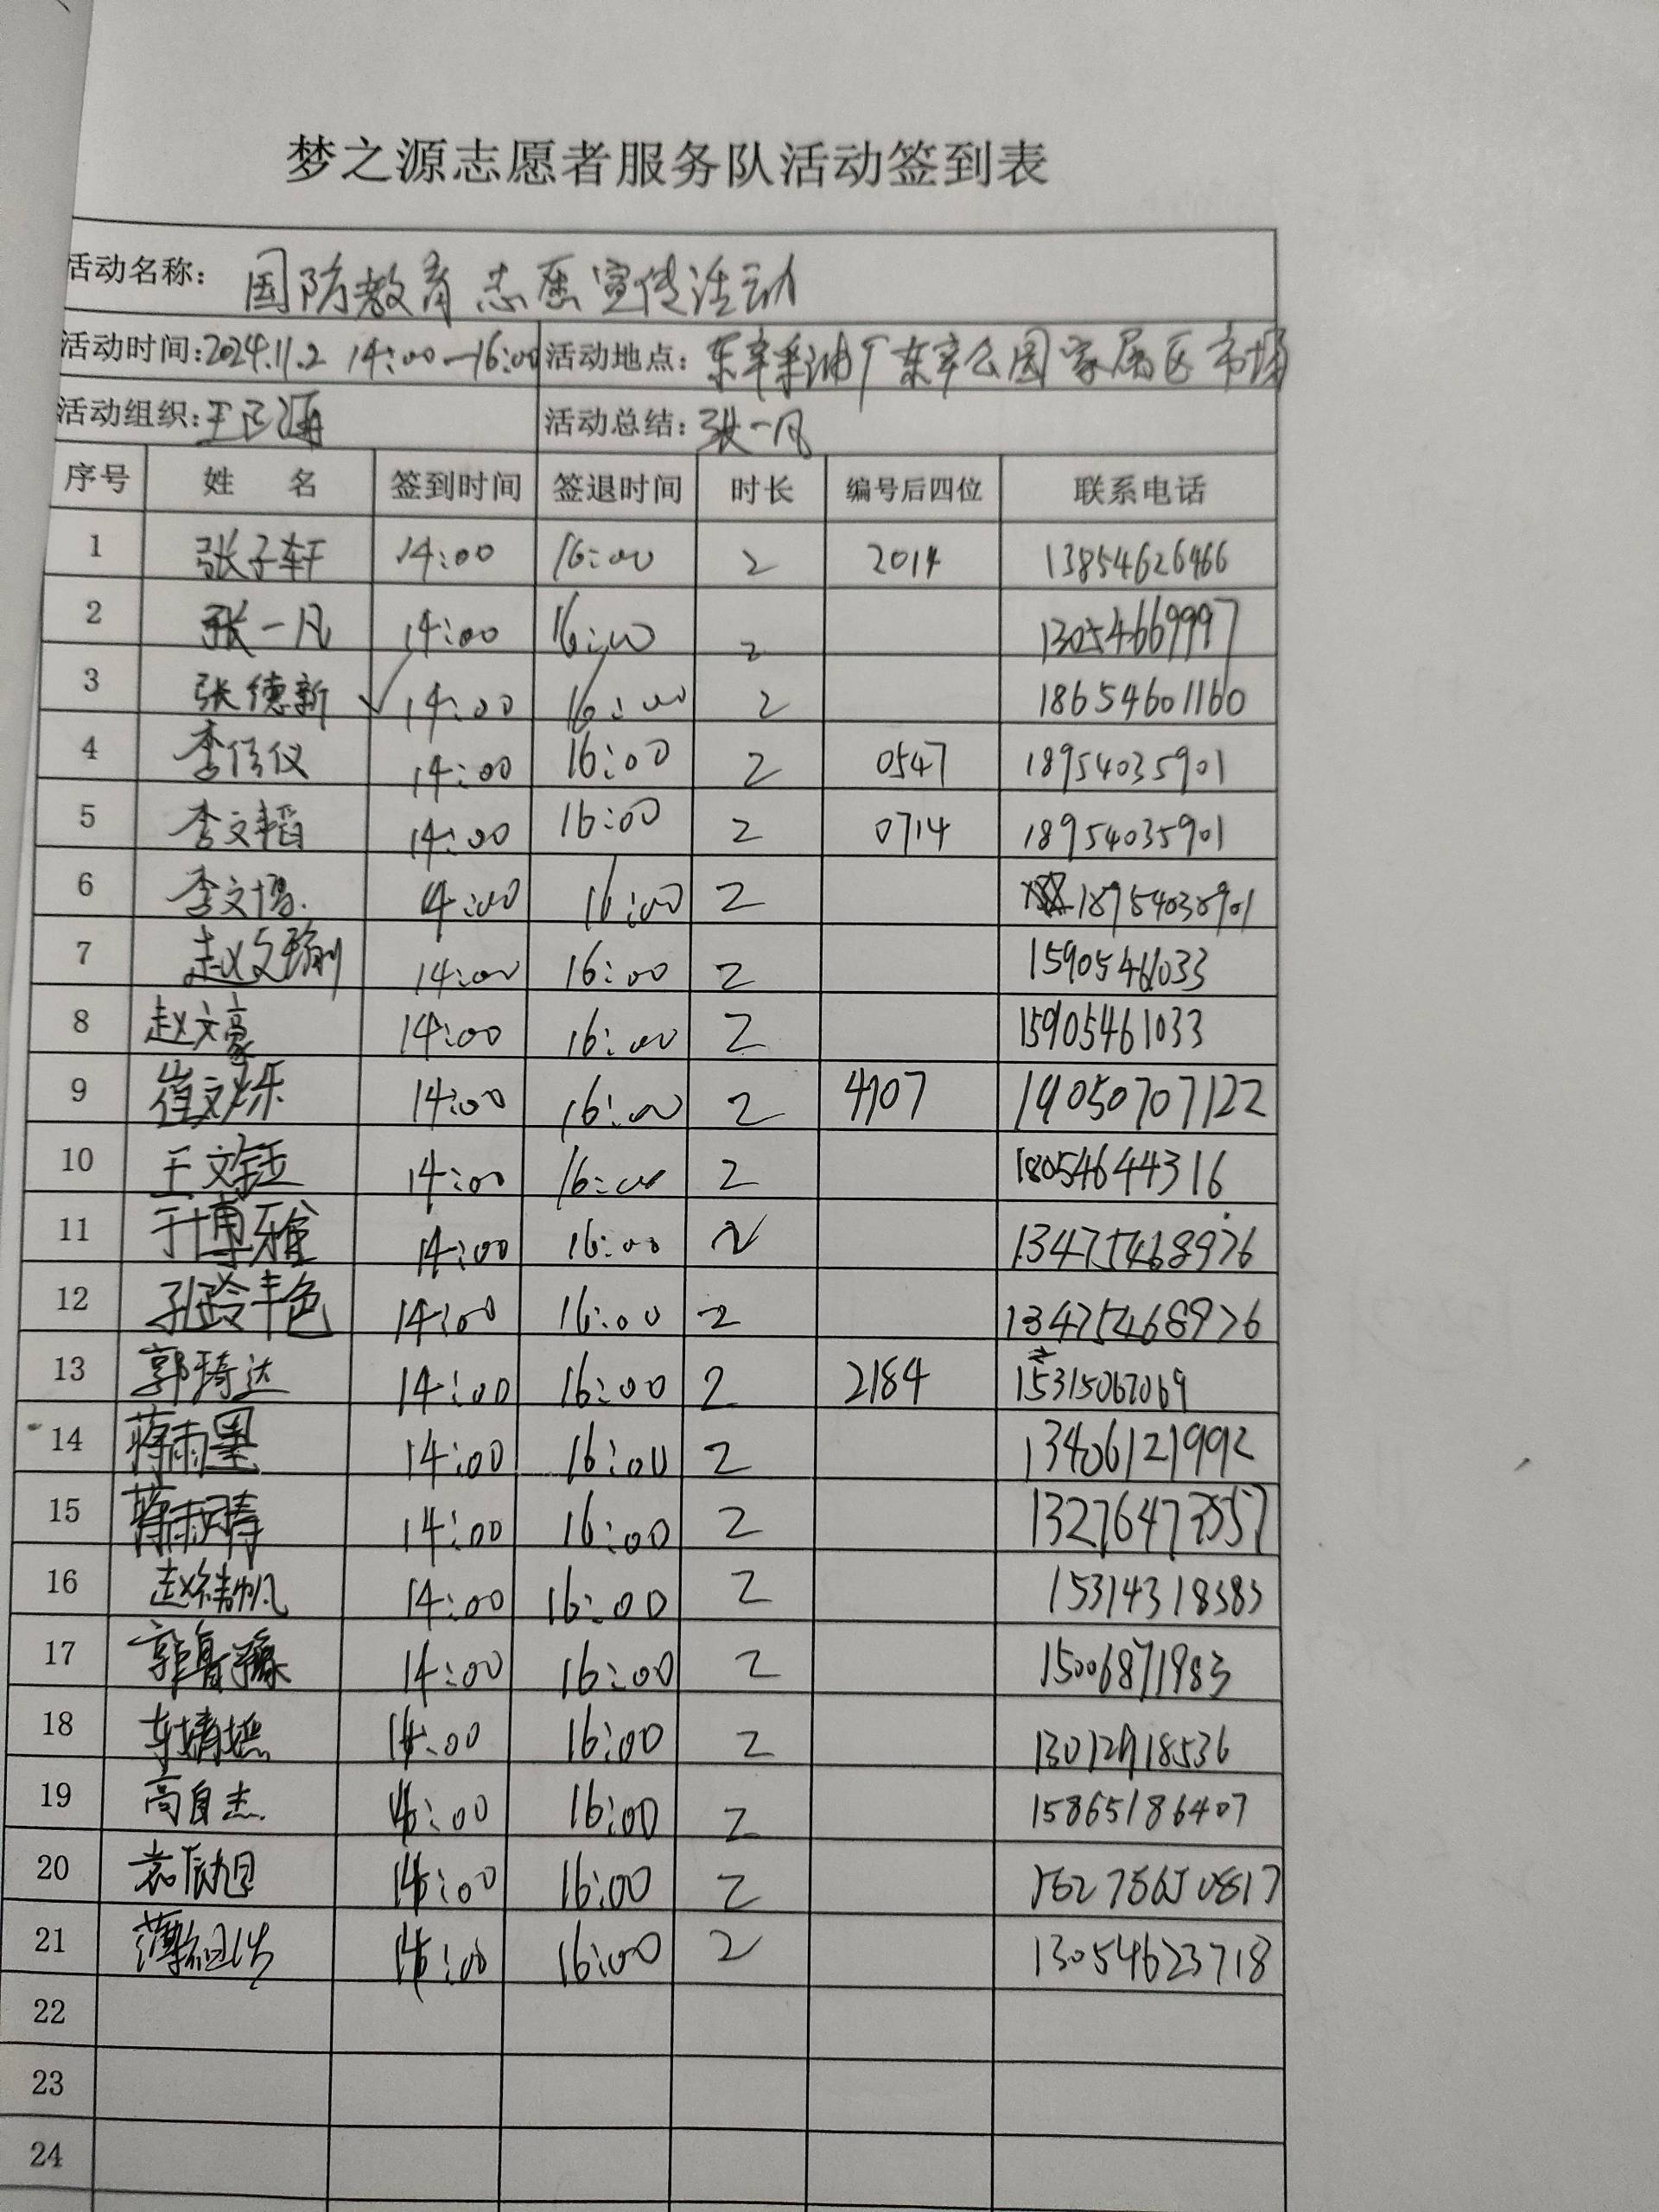 梦之源志愿者服务队活动签到表
活动名称: 国防教育志愿宣传活动
活动时间:2024.11.2 14:00—16:00 活动地点: 东辛采油厂东辛公园家属区市场
活动组织: 王 涵 活动总结: 张一凡
序号 姓 名 签到时间 签退时间 时长 编号后四位 联系电话
1 张子轩 14:00 16:00 2 2014 13854626466
2 张一凡 14:00 16:00 2 13054669997
3 张德新 14:00 16:00 2 18654601160
4 李佰仪 14:00 16:00 2 0547 18954035901
5 李文韬 14:00 16:00 2 0714 18954035901
6 李文博 14:00 16:00 2 18954035901
7 赵文瑜 14:00 16:00 2 15905461033
8 赵文豪 14:00 16:00 2 15905461033
9 崔文烁 14:00 16:00 2 4707 19050707122
10 王文钰 14:00 16:00 2 18054644316
11 于博雅 14:00 16:00 2 13475468976
12 孔玲丰色 14:00 16:00 2 13475468976
13 郭琦达 14:00 16:00 2 2184 15315067069
14 蒋雨墨 14:00 16:00 2 13406121992
15 蒋雨 14:00 16:00 2 13276473557
16 赵 帆 14:00 16:00 2 15314318383
17 郭 14:00 16:00 2 15006871983
18 车婧嫣 14:00 16:00 2 13012918536
19 高自志 14:00 16:00 2 15865186407
20 袁辰旭 14:00 16:00 2
21 薄 14:00 16:00 2 13054623718
22
23
24